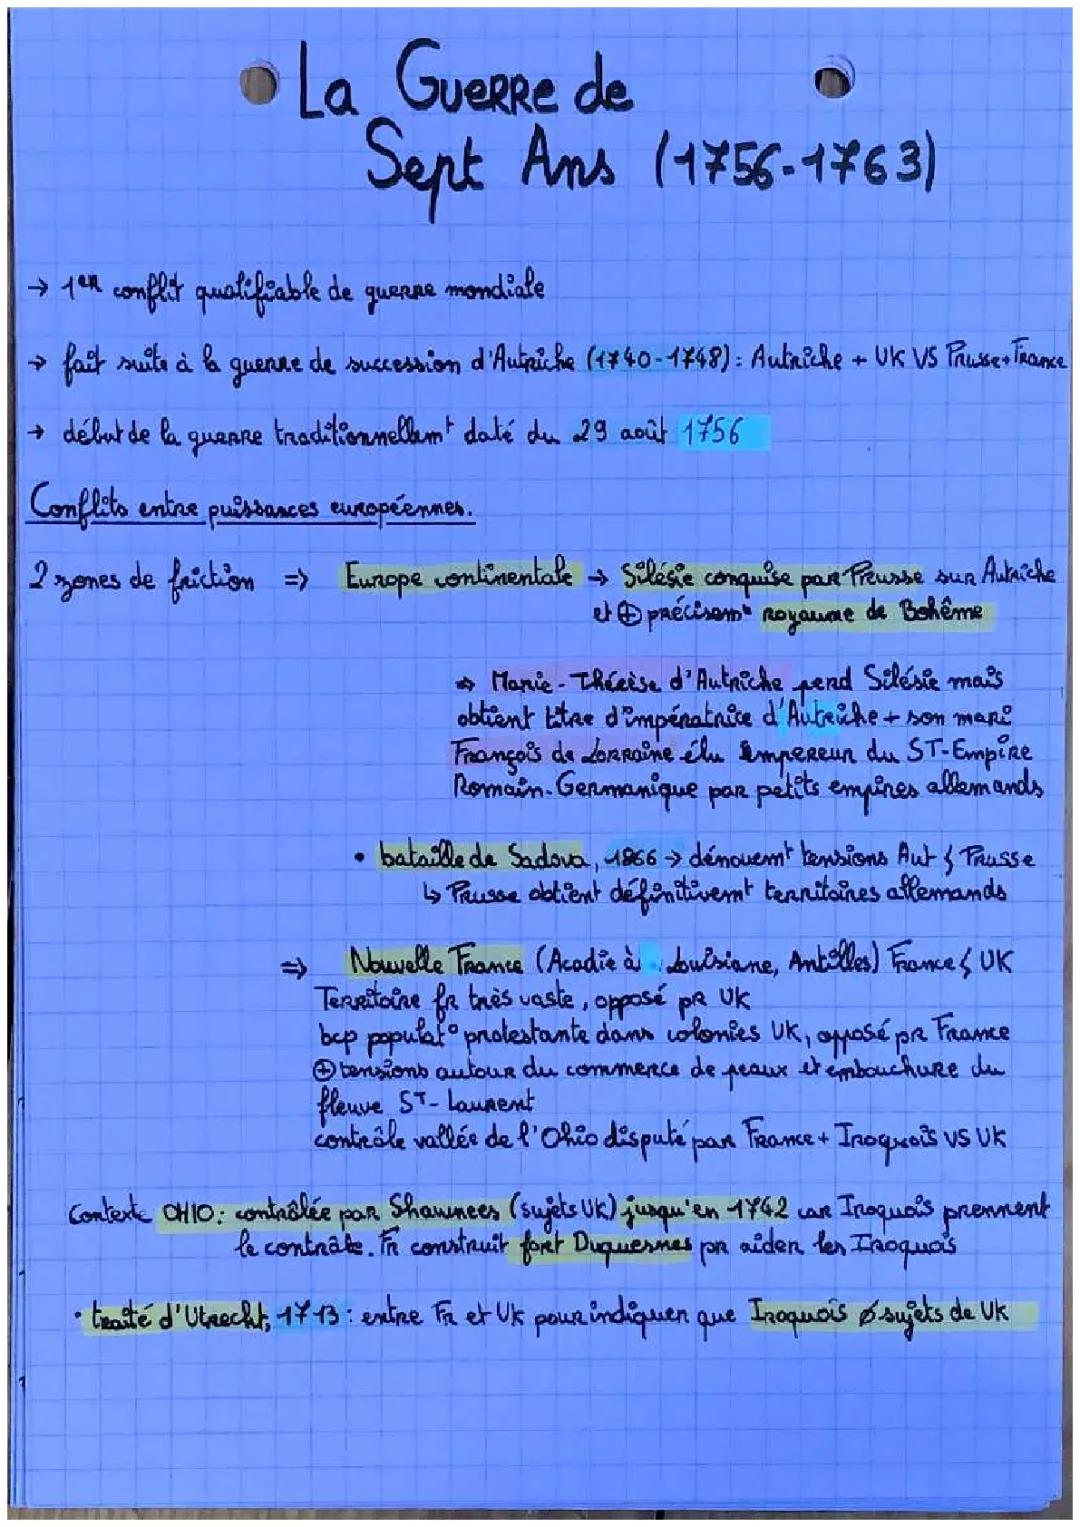 La Guerre de
Sept Ans (1756-1763)
→ 1er conflit qualifiable de guerre mondiale
→ fait suite à la guerre de succession d'Autriche (1740-1748) : Autriche + UK VS Prusse + France
→ début de la guerre traditionnellemt daté du 29 août 1756
Conflits entre puissances européennes.
2 zones de friction ⇒ Europe continentale → Silésie conquise par Preusse sur Autriche
et ⊕ précisemt royaume de Bohême
⇒ Marie-Thérèse d'Autriche perd Silésie mais
obtient titre d'impératrice d'Autriche + son mari
François de Lorraine élu Empereur du ST-Empire
Romain-Germanique par petits empires allemands
• bataille de Sadova, 1866 → dénouemt tensions Aut & Prusse
↳ Prusse obtient définitivemt territoires allemands
⇒ Nouvelle France (Acadie à Louisiane, Antilles) France & UK
Territoire fr très vaste, opposé pr UK
bcp populat° protestante dans colonies UK, opposé pr France
⊕ tensions autour du commerce de peaux et embouchure du
fleuve ST-Laurent
contrôle vallée de l'Ohio disputé par France + Iroquois VS UK
Contexte OHIO : contrôlée par Shawnees (sujets UK) jusqu'en 1742 car Iroquois prennent
le contrôle. Fr construit fort Duquesnes pr aider les Iroquois
• traité d'Utrecht, 1713 : entre Fr et UK pour indiquer que Iroquois ∅ sujets de UK